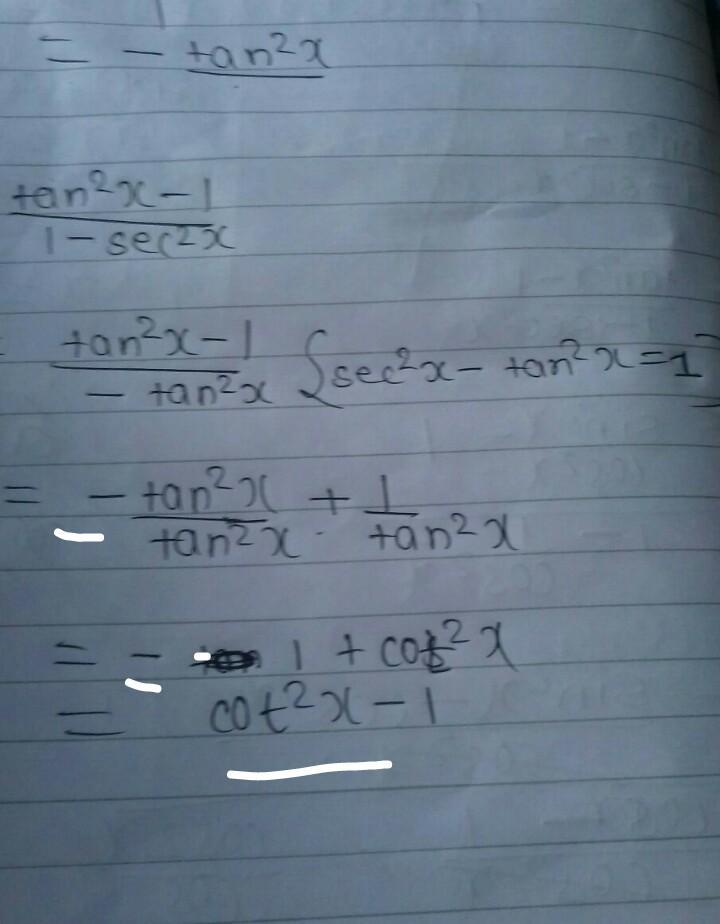 = - tan²x
tan²x - 1
1 - sec²x
tan²x - 1
- tan²x {sec²x - tan²x = 1
= - tan²x/tan²x + 1/tan²x
= - 1 + cot²x
= cot²x - 1